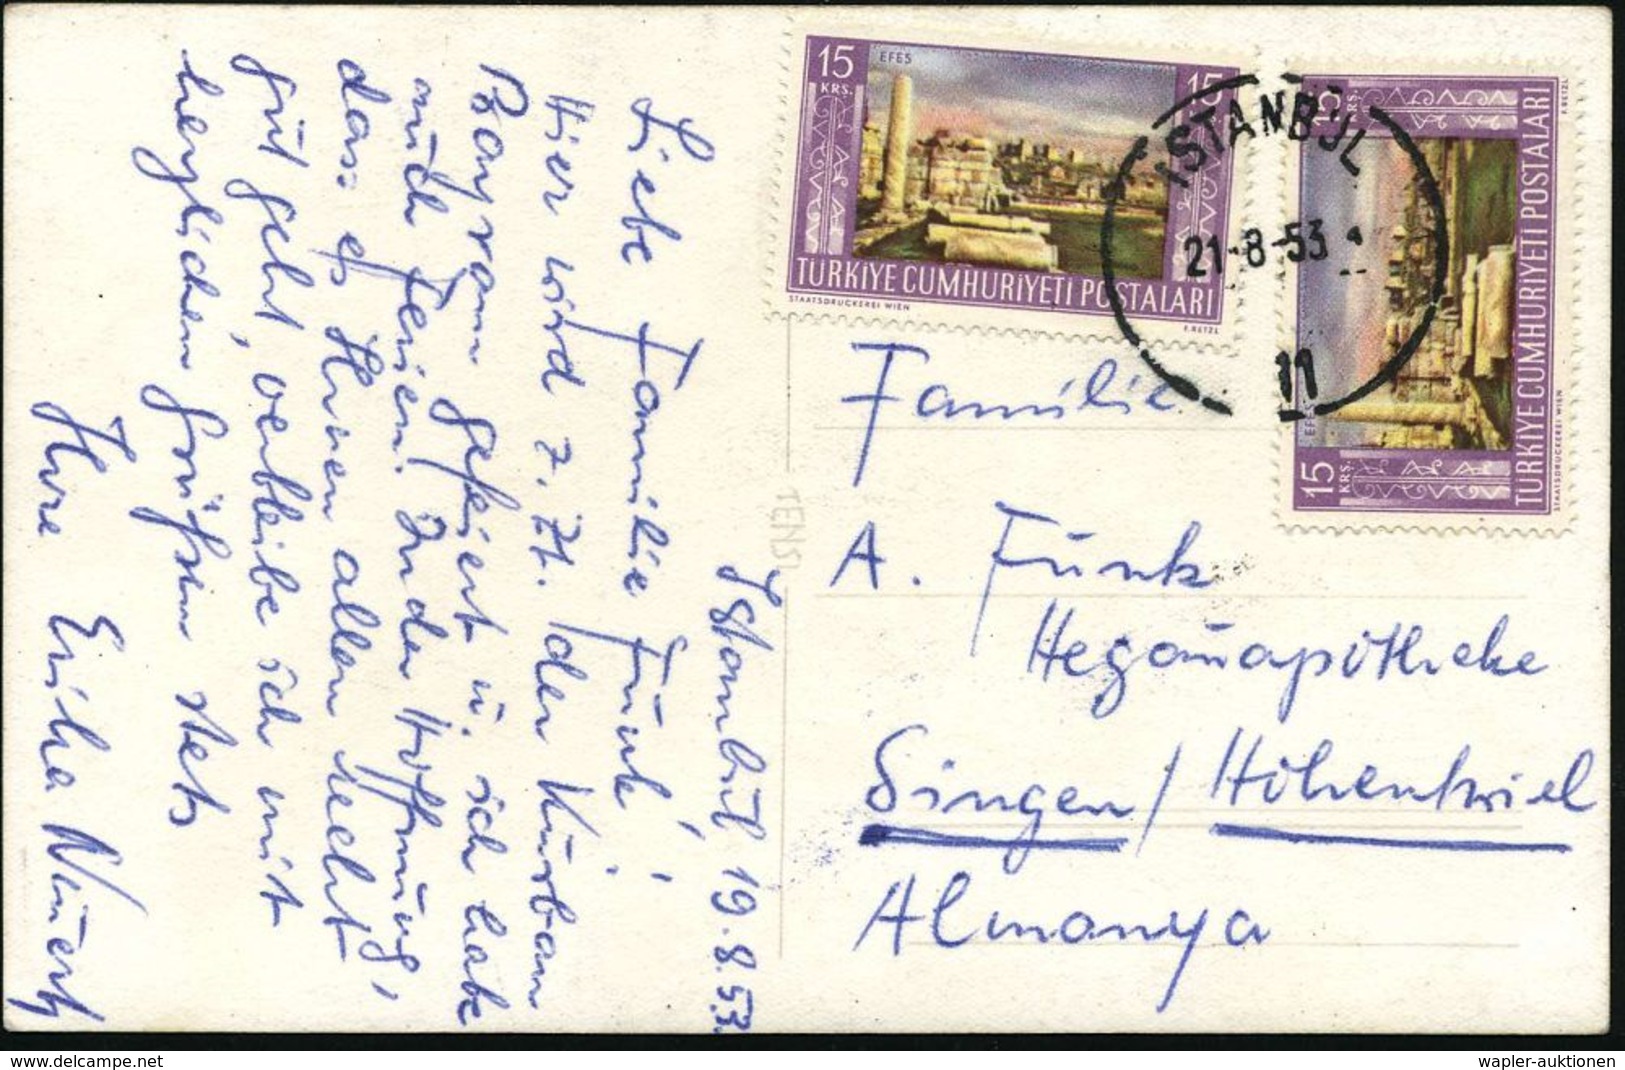 Istanbul 19.8.53.
Liebe Familie Funk!
Hier wird z. Zt. der Kurban
Bayram gefeiert u. ich habe
auch Ferien. In der Hoffnung,
dass es Ihnen allen recht
gut geht, verbleibe ich mit
herzlichen Grüßen stets
Ihre Erika
15
KRS.
EFES
15
TÜRKİYE CUMHURİYETİ POSTALARI
STAATSDRUCKEREI WIEN
F.RETZL
15
KRS.
EFES
15
KRS.
TÜRKİYE CUMHURİYETİ POSTALARI
STAATSDRUCKEREI WIEN
F.RETZL
İSTANBUL
21-8-53
11
Familie
A. Funk
Hegauapotheke
Singen / Hohentwiel
Almanya
delcampe.net
wapler-auktionen